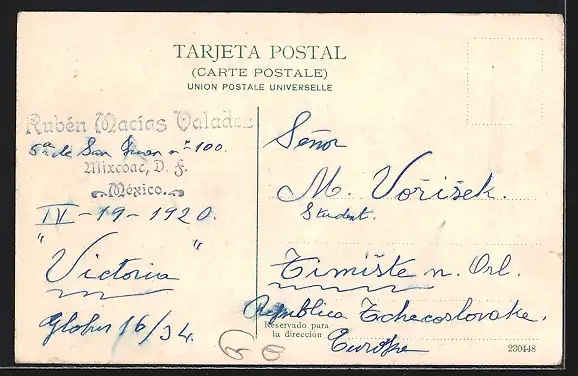 TARJETA POSTAL
(CARTE POSTALE)
UNION POSTALE UNIVERSELLE
Rubén Macías Valadez
5ª de San Juan nº 100.
Mixcoac, D. F.
México.
IV-19-1920.
"Victoria"
Globus 16/34.
Señor
M. Voříšek.
Student.
Timiště n. Orl.
Republica Tchecoslovake.
Europe
Reservado para
la dirección
230448